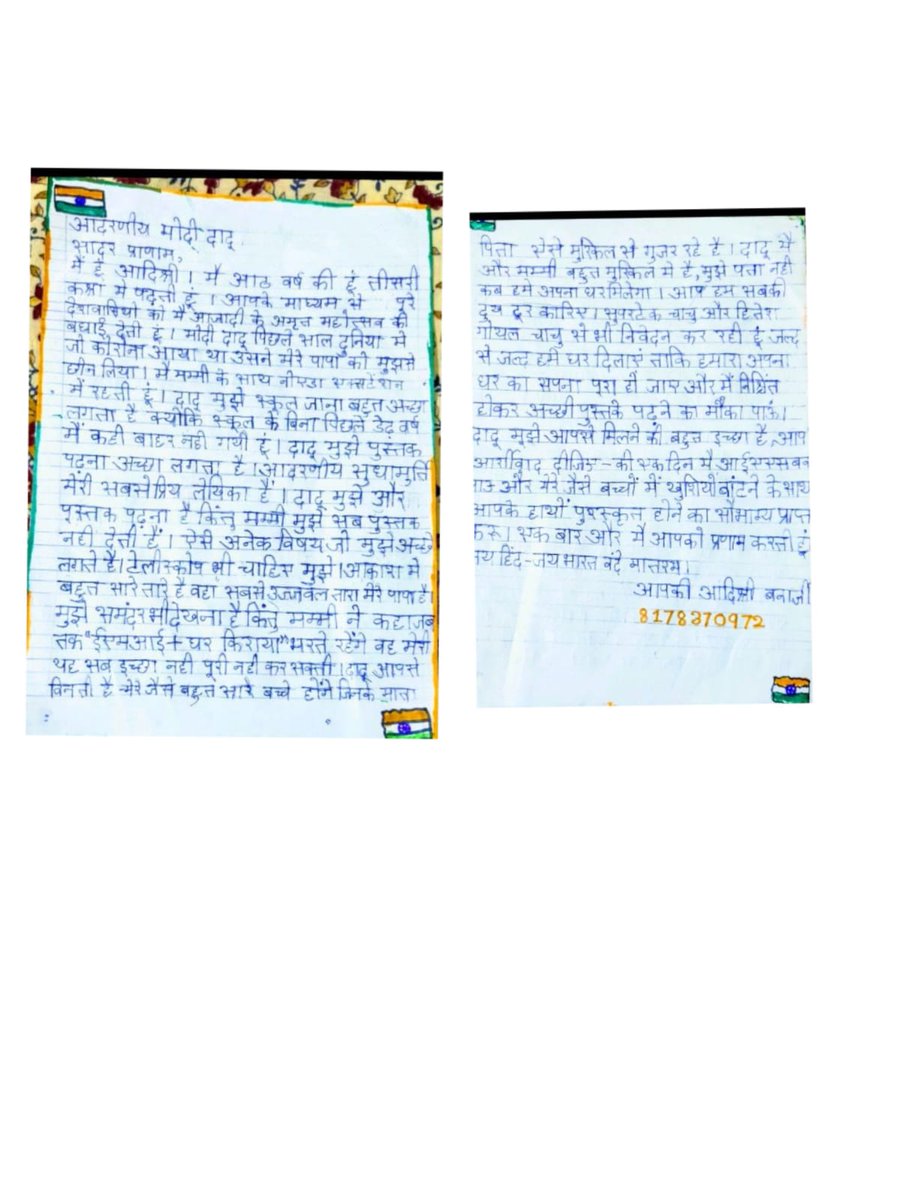 आदरणीय मोदी दादू
सादर प्रणाम,
मैं हूं आदिश्री । मै आठ वर्ष की हूं तीसरी
कक्षा मे पढ़ती हूं । आपके माध्यम से पूरे
देशवासियो को मै आजादी के अमृत महोत्सव की
बधाई देती हूं । मोदी दादू पिछले साल दुनिया मे
जो कोरोना आया था उसने मेरे पापा को मुझसे
छीन लिया । मै मम्मी के साथ नोएडा एक्सटेंशन
में रहती हूं । दादू मुझे स्कूल जाना बहुत अच्छा
लगता है क्योंकि स्कूल के बिना पिछले डेढ़ वर्ष
में कही बाहर नही गयी हूं । दादू मुझे पुस्तक
पढ़ना अच्छा लगता है । आदरणीय सुधामूर्ति
मेरी सबसेप्रिय लेखिका हैं । दादू मुझे और
पुस्तक पढ़ना है किंतु मम्मी मुझे सब पुस्तक
नही देती हैं । ऐसी अनेक विषय जो मुझे अच्छे
लगते है। टेलीस्कोप भी चाहिए मुझे । आकाश मे
बहुत सारे तारे है वहां सबसे उज्जवल तारा मेरे पापा है।
मुझे समंदर भी देखना है किंतु मम्मी ने कहा जब
तक "ईएमआई + घर किराया" भरते रहेंगे वह मेरी
यह सब इच्छा नही पूरी नही कर सकती । दादू आपसे
विनती है मेरे जैसे बहुत सारे बच्चे होंगे जिनके माता
पिता ऐसे मुश्किल से गुजर रहे है । दादू मै
और मम्मी बहुत मुश्किल मे है, मुझे पता नही
कब हमे अपना घर मिलेगा । आप हम सबकी
दुख दूर कारिए । सुपरटेक चाचु और हितेश
गोयल चाचु से भी निवेदन कर रही हूं जल्द
से जल्द हमें घर दिलाएं ताकि हमारा अपना
घर का सपना पूरा हो जाए और मैं निश्चिंत
होकर अच्छी पुस्तके पढ़ने का मौका पाऊं।
दादू मुझे आपसे मिलने की बहुत इच्छा है, आप
आर्शीवाद दीजिए - की एक दिन मै आईएएस बन
पाऊ और मेरे जैसे बच्चों में खुशियो बांटने के साथ
आपके हाथों पुरस्कृत होने का सौभाग्य प्राप्त
करू । एक बार और मै आपको प्रणाम करती हूं
जय हिंद - जय भारत वंदे मातरम ।
आपकी आदिश्री बनार्जी
8178270972